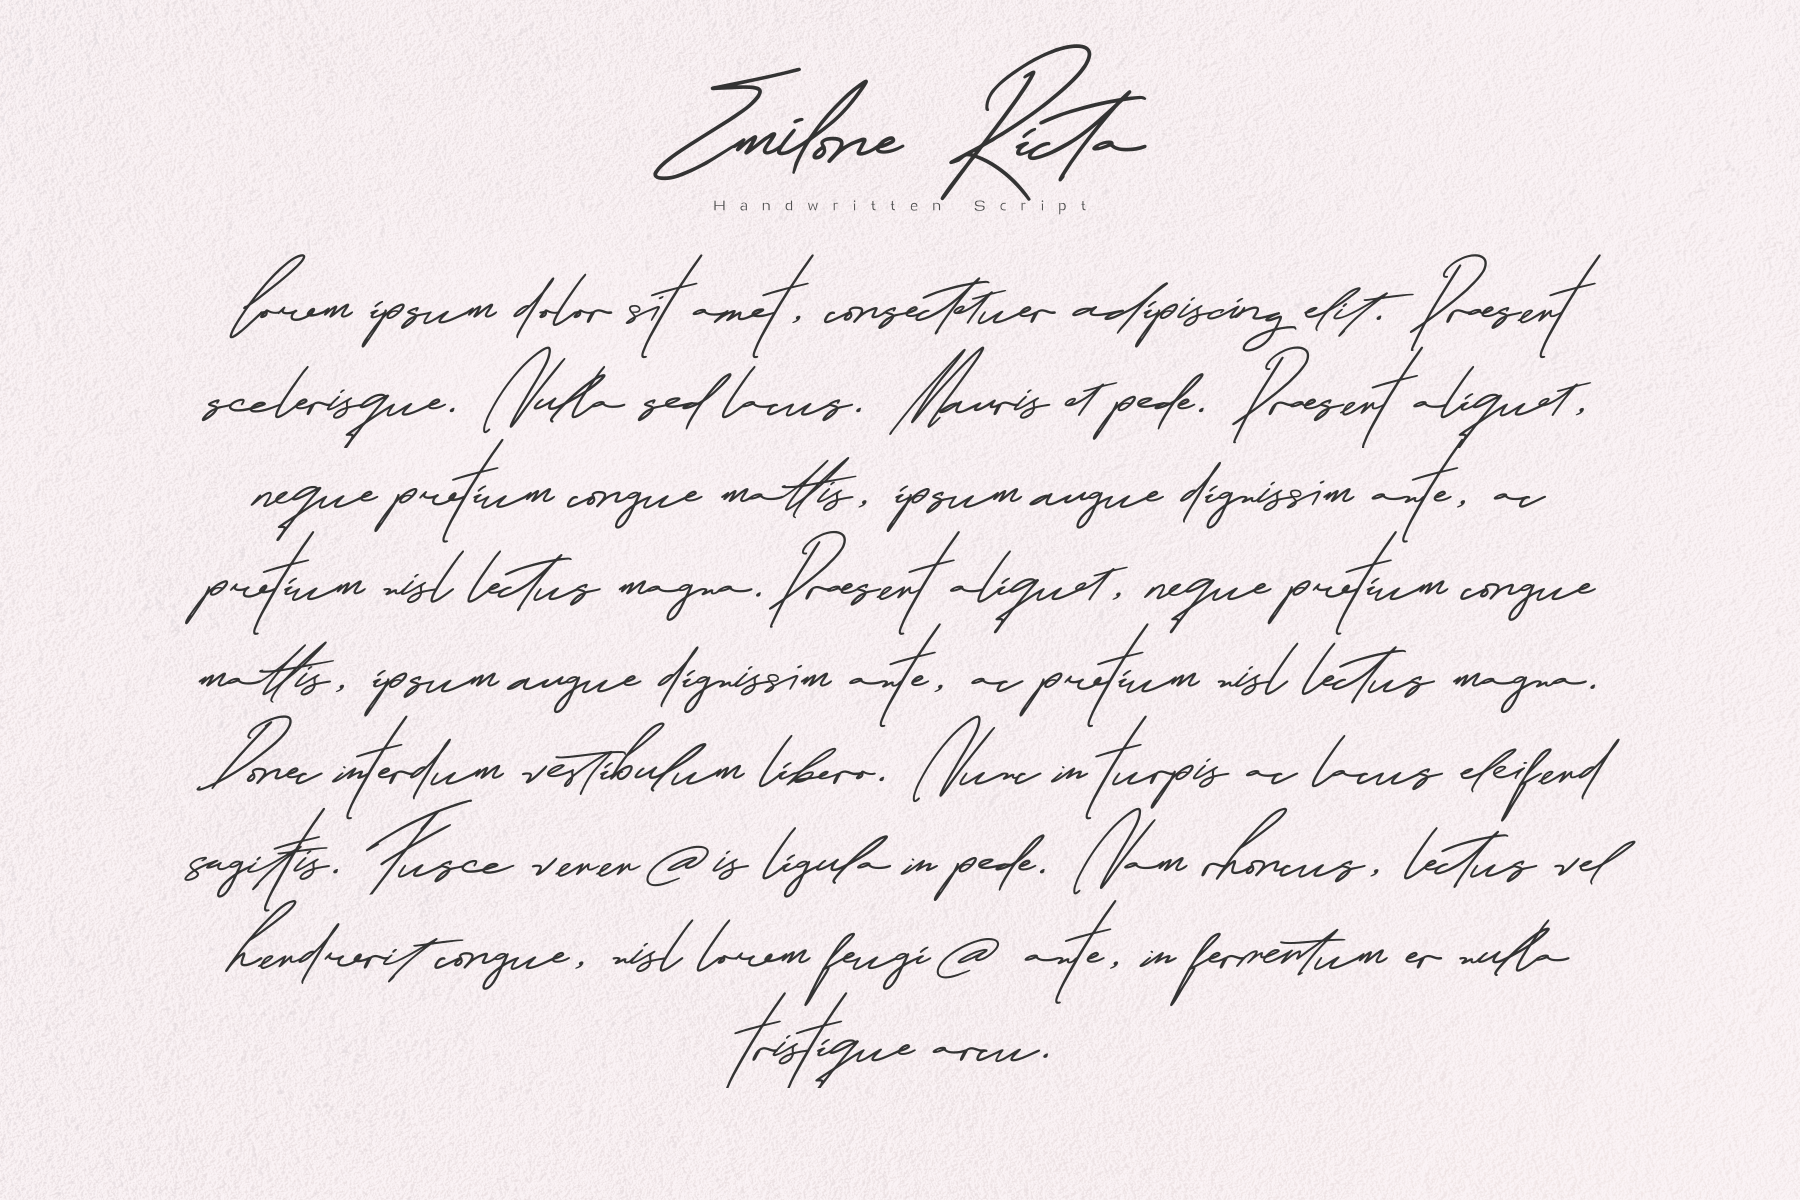 Emilone Ricta
Handwritten Script
lorem ipsum dolor sit amet, consectetuer adipiscing elit. Praesent
scelerisque. Nulla sed lacus. Mauris et pede. Praesent aliquet,
neque pretium congue mattis, ipsum augue dignissim ante, ac
pretium nisl lectus magna. Praesent aliquet, neque pretium congue
mattis, ipsum augue dignissim ante, ac pretium nisl lectus magna.
Donec interdum vestibulum libero. Nunc in turpis ac lacus eleifend
sagittis. Fusce venen@is ligula in pede. Nam rhoncus, lectus vel
hendrerit congue, nisl lorem feugi@ ante, in fermentum er nulla
tristique arcu.